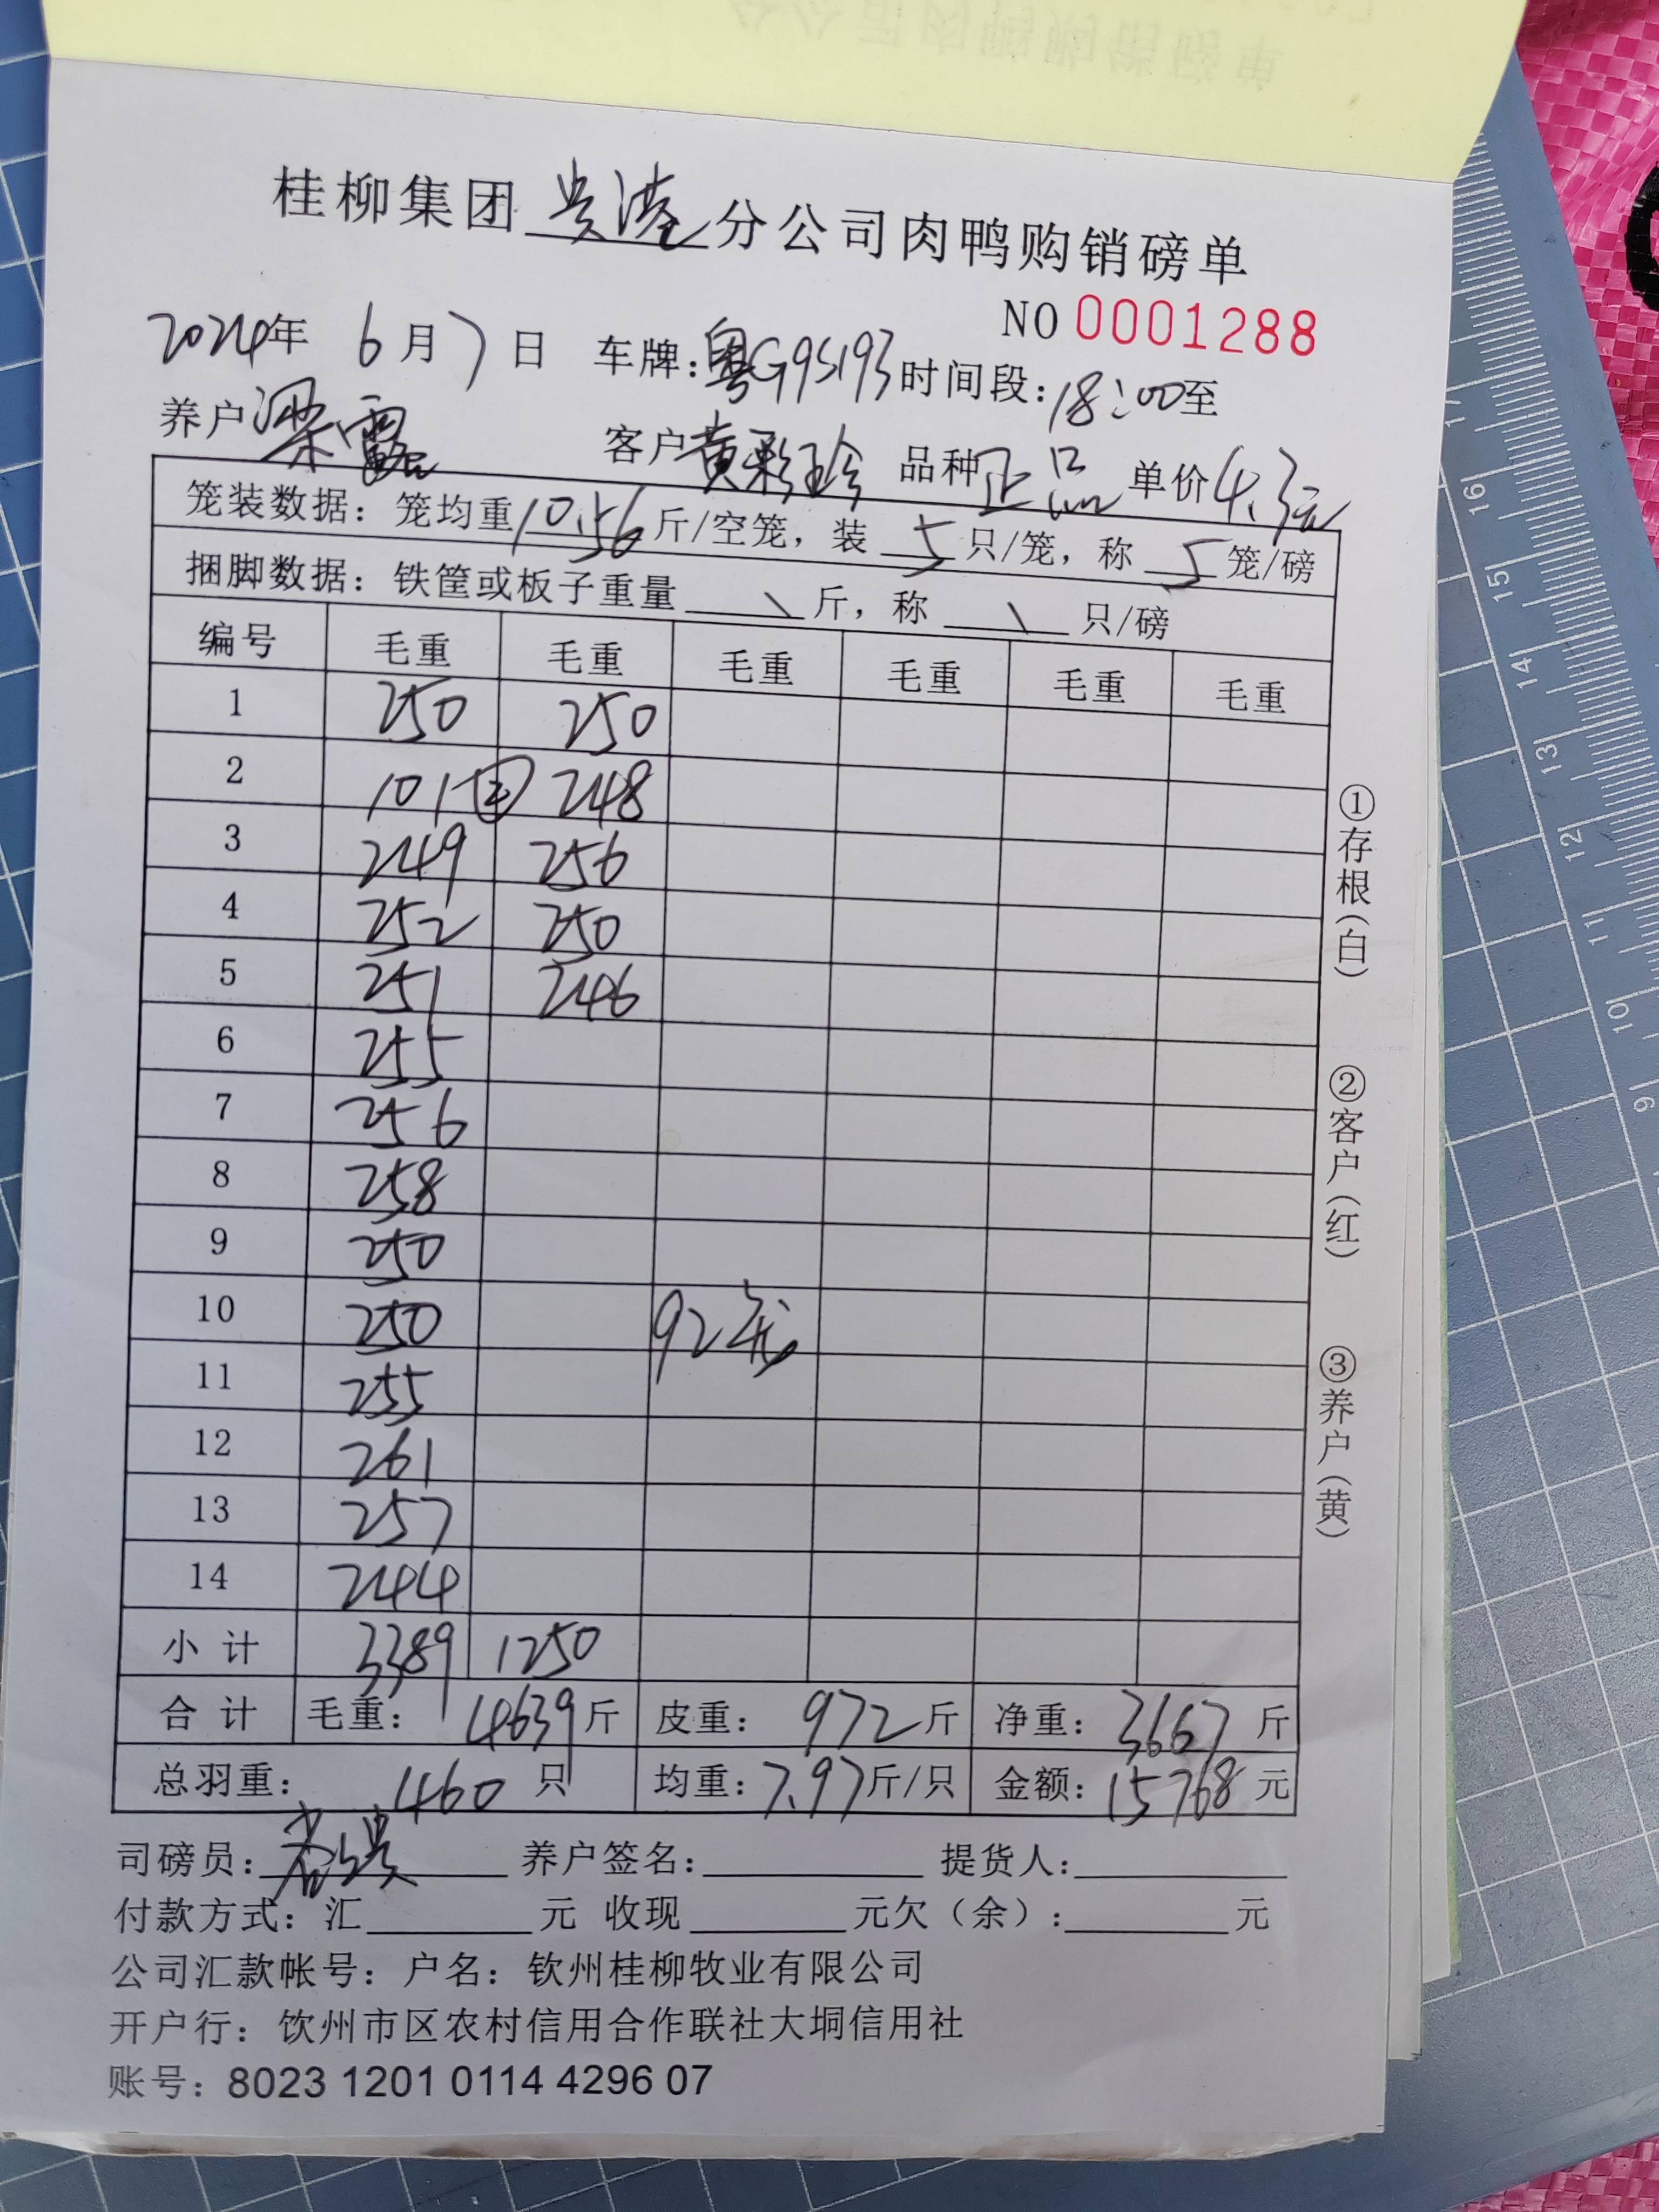 桂柳集团贵港分公司肉鸭购销磅单
NO 0001288
2024年 6月7日 车牌:粤G9S193时间段:18:00至
养户梁露 客户黄彩珍 品种正品 单价4.3元
笼装数据:笼均重10.56斤/空笼,装 5 只/笼,称 5 笼/磅
捆脚数据:铁筐或板子重量 \ 斤,称 \ 只/磅
编号 毛重 毛重 毛重 毛重 毛重 毛重
1 250 250
2 101② 248
3 249 256
4 252 250
5 251 246
6 255
7 256
8 258
9 250
10 250 92笼
11 255
12 261
13 257
14 244
小计 3389 1250
合计 毛重: 4639斤 皮重: 972斤 净重: 3667斤
总羽重: 460只 均重:7.97斤/只 金额:15768元
司磅员: 养户签名: 提货人:
付款方式:汇 元 收现 元欠(余): 元
公司汇款帐号:户名:钦州桂柳牧业有限公司
开户行:钦州市区农村信用合作联社大垌信用社
账号:8023 1201 0114 4296 07
①存根(白)
②客户(红)
③养户(黄)
17
16
15
14
13
12
11
10
9